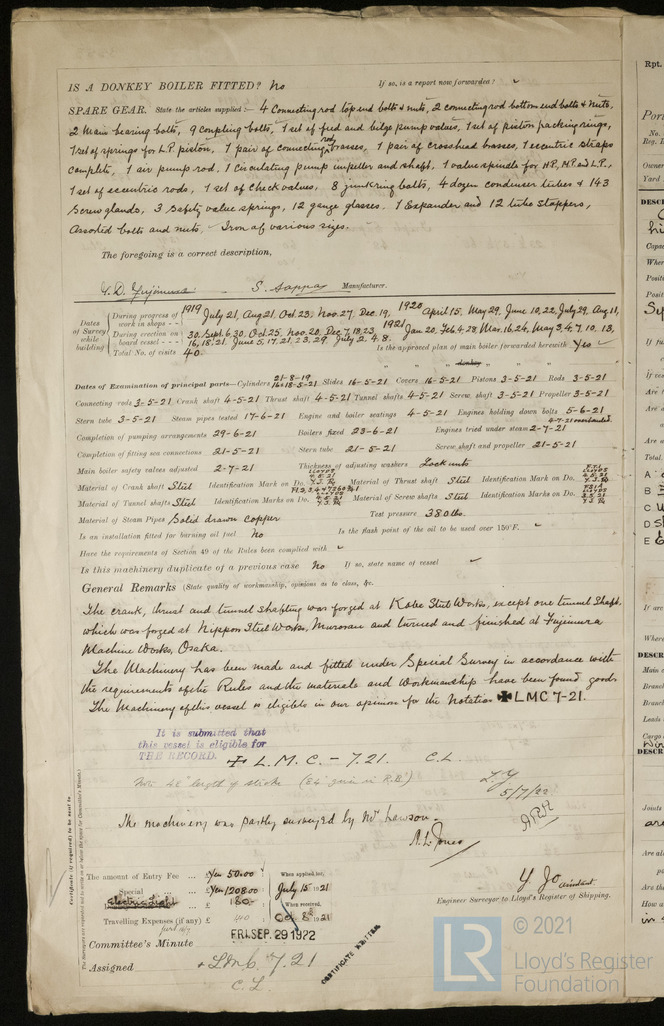 IS A DONKEY BOILER FITTED? No If so, is a report now forwarded?
SPARE GEAR. State the articles supplied:— 4 Connecting rod top end bolts & nuts, 2 connecting rod bottom end bolts & nuts,
2 Main bearing bolts, 9 Coupling bolts, 1 set of feed and bilge pump valves, 1 set of piston packing rings,
1 set of springs for L.P. piston, 1 pair of connecting rod brasses, 1 pair of crosshead brasses, 1 eccentric straps
complete, 1 air pump rod, 1 Circulating pump impeller and shaft, 1 valve spindle for H.P., M.P. and L.P.,
1 set of eccentric rods, 1 set of check valves, 8 junkring bolts, 4 dozen condenser tubes & 143
Screw glands, 3 Safety valve springs, 12 gauge glasses. 1 Expander and 12 tube stoppers,
Assorted bolts and nuts. Iron of various sizes.
The foregoing is a correct description,
Y. D. Fujimura S. Sappa Manufacturer.
Dates of Survey while building
During progress of work in shops - - 1919 July 21, Aug 21, Oct 23, Nov. 27, Dec. 19, 1920 April 15, May 29, June 10, 22, July 29, Aug 11,
During erection on board vessel - - - 30, Sept. 6. 30. Oct. 25, Nov. 20, Dec. 7, 18. 23, 1921 Jan 20, Feb. 4. 28, Mar. 16. 24, May 3, 4. 7, 10. 13,
16. 18. 21. June 5, 17. 21. 23. 29, July 2. 4. 8.
Total No. of visits 40. Is the approved plan of main boiler forwarded herewith Yes
" " " donkey " " "
Dates of Examination of principal parts—Cylinders 21-8-19 16 & 18-5-21 Slides 16-5-21 Covers 16-5-21 Pistons 3-5-21 Rods 3-5-21
Connecting rods 3-5-21 Crank shaft 4-5-21 Thrust shaft 4-5-21 Tunnel shafts 4-5-21 Screw shaft 3-5-21 Propeller 3-5-21
Stern tube 3-5-21 Steam pipes tested 17-6-21 Engine and boiler seatings 4-5-21 Engines holding down bolts 5-6-21
Completion of pumping arrangements 29-6-21 Boilers fixed 23-6-21 Engines tried under steam 2-7-21 4-7-21
Completion of fitting sea connections 21-5-21 Stern tube 21-5-21 Screw shaft and propeller 21-5-21
Main boiler safety valves adjusted 2-7-21 Thickness of adjusting washers Lock nuts
Material of Crank shaft Steel Identification Mark on Do. Material of Thrust shaft Steel Identification Mark on Do.
Material of Tunnel shafts Steel Identification Marks on Do. Material of Screw shafts Steel Identification Marks on Do.
Material of Steam Pipes Solid drawn copper Test pressure 380 lbs.
Is an installation fitted for burning oil fuel No Is the flash point of the oil to be used over 150°F.
Have the requirements of Section 49 of the Rules been complied with
Is this machinery duplicate of a previous case No If so, state name of vessel
General Remarks (State quality of workmanship, opinions as to class, &c.
The crank, thrust and tunnel shafting was forged at Kobe Steel Works, except one tunnel shaft,
which was forged at Nippon Steel Works, Muroran and turned and finished at Fujimura
Machine Works, Osaka.
The Machinery has been made and fitted under Special Survey in accordance with
the requirements of the Rules and the materials and workmanship have been found good.
The Machinery of this vessel is eligible in our opinion for the Notation ✠ LMC 7-21.
It is submitted that
this vessel is eligible for
THE RECORD. + L.M.C. - 7.21. C.L.
Note 48" length of stroke (54" given in R.B.)
5/7/22
The machinery was partly surveyed by Mr Lawson.
A. L. Jones
The amount of Entry Fee ... Yen 50.00 When applied for,
Special ... Yen 1208.00 July 15 1921
Electric Light £ 180.- When received,
Travelling Expenses (if any) £ 40 Oct. 8 1921
Y. Jo assistant
Engineer Surveyor to Lloyd's Register of Shipping.
Committee's Minute FRI. SEP. 29 1922
Assigned + LMC 7.21
C.L.
CERTIFICATE WRITTEN
Certificate (if required) to be sent to
© 2021
LR Lloyd's Register
Foundation
Rpt.
Port
No.
Reg.
Owner
Yard
DESCR